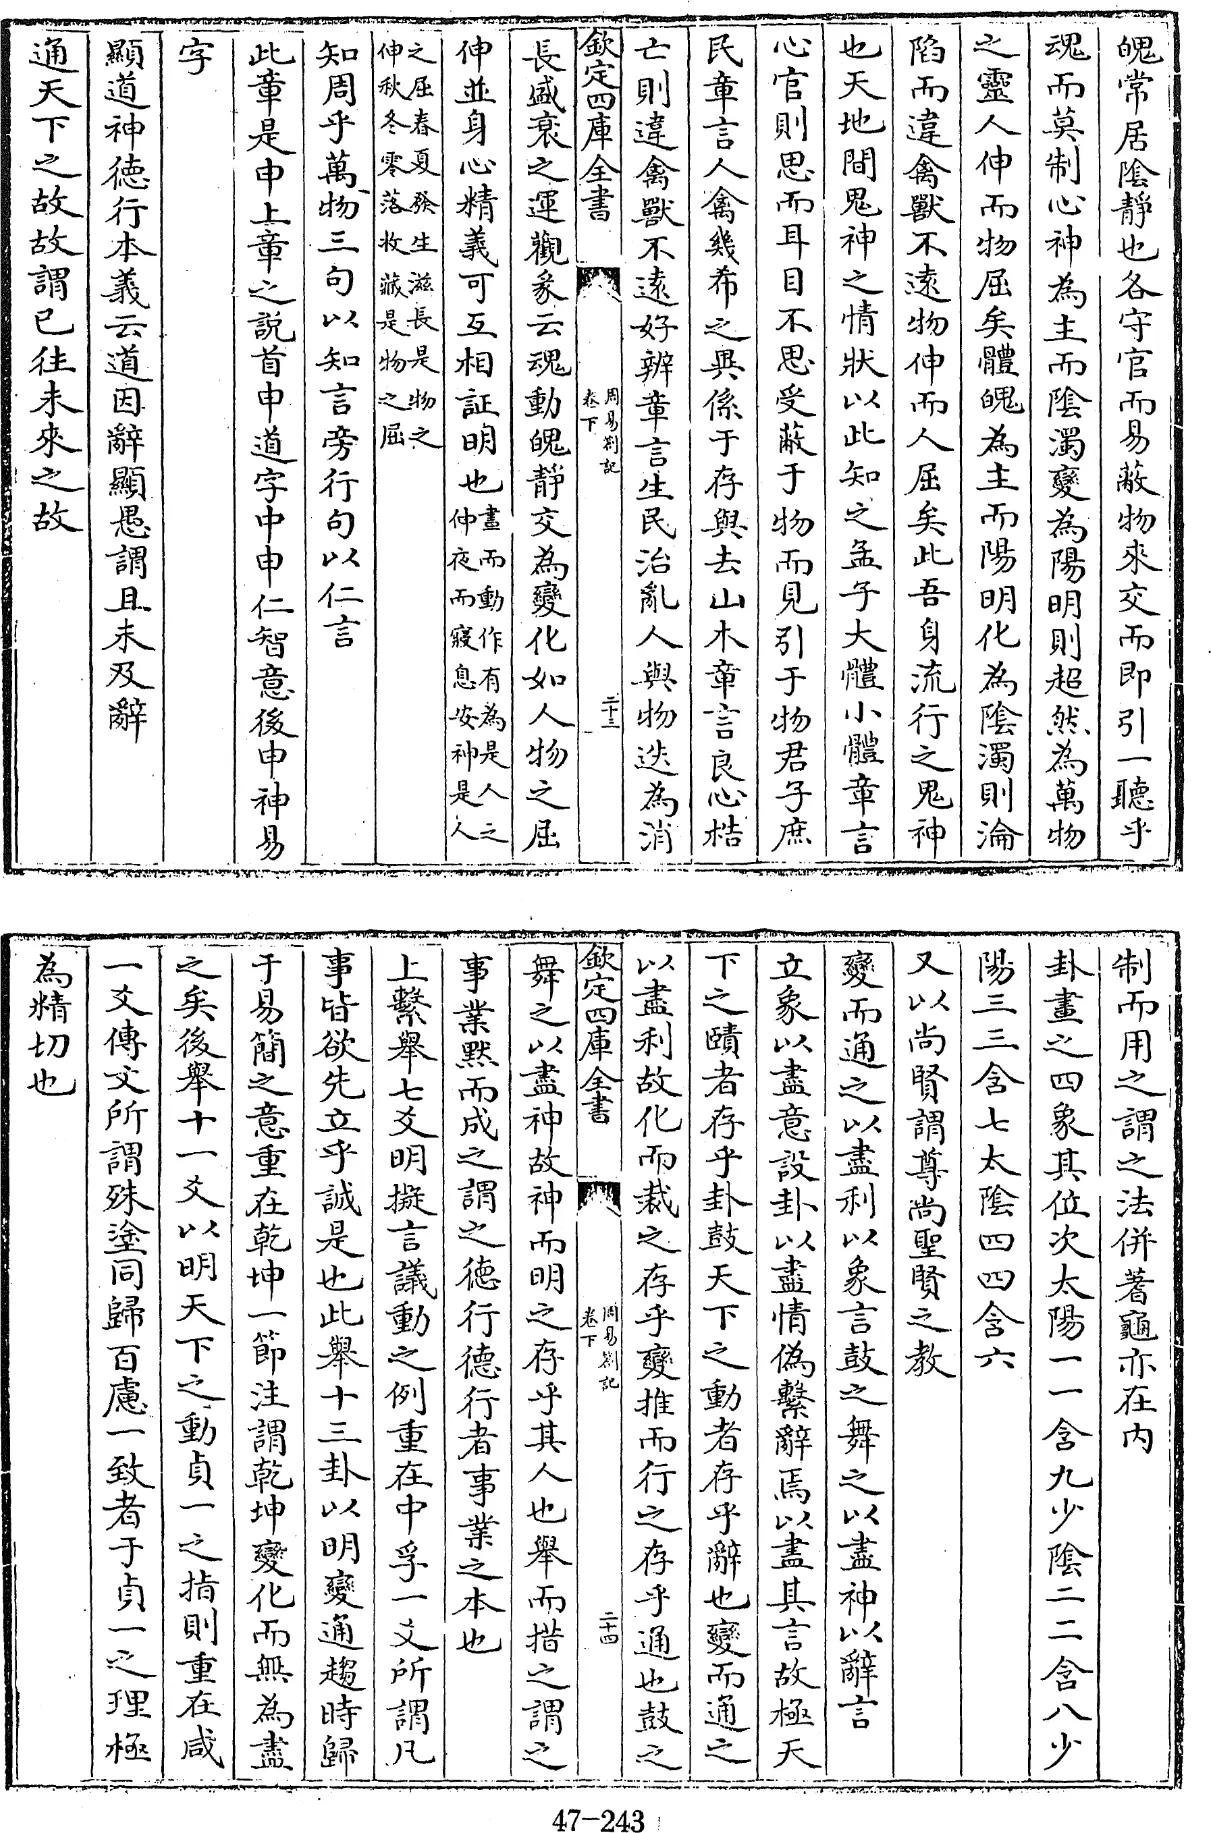 魄常居陰靜也各守官而易蔽物來交而即引一聽乎
魂而莫制心神為主而陰濁變為陽明則超然為萬物
之靈人伸而物屈矣體魄為主而陽明化為陰濁則淪
陷而違禽獸不遠物伸而人屈矣此吾身流行之鬼神
也天地間鬼神之情狀以此知之孟子大體小體章言
心官則思而耳目不思受蔽于物而見引于物君子庶
民章言人禽幾希之異係于存與去山木章言良心梏
亡則違禽獸不遠好辨章言生民治亂人與物迭為消
欽定四庫全書
周易劄記
卷下
二十三
長盛衰之運觀彖云魂動魄靜交為變化如人物之屈
伸並身心精義可互相証明也晝而動作有為是人之
伸夜而寢息安神是人
之屈春夏發生滋長是物之
伸秋冬零落收藏是物之屈
知周乎萬物三句以知言旁行句以仁言
此章是申上章之說首申道字中申仁智意後申神易
字
顯道神德行本義云道因辭顯愚謂且未及辭
通天下之故故謂已往未來之故
制而用之謂之法併蓍龜亦在內
卦畫之四象其位次太陽一一含九少陰二二含八少
陽三三含七太陰四四含六
又以尚賢謂尊尚聖賢之教
變而通之以盡利以象言鼓之舞之以盡神以辭言
立象以盡意設卦以盡情偽繫辭焉以盡其言故極天
下之賾者存乎卦鼓天下之動者存乎辭也變而通之
以盡利故化而裁之存乎變推而行之存乎通也鼓之
欽定四庫全書
周易劄記
卷下
二十四
舞之以盡神故神而明之存乎其人也舉而措之謂之
事業默而成之謂之德行德行者事業之本也
上繫舉七爻明擬言議動之例重在中孚一爻所謂凡
事皆欲先立乎誠是也此舉十三卦以明變通趨時歸
于易簡之意重在乾坤一節注謂乾坤變化而無為盡
之矣後舉十一爻以明天下之動貞一之指則重在咸
一爻傳文所謂殊塗同歸百慮一致者于貞一之理極
為精切也
47-243